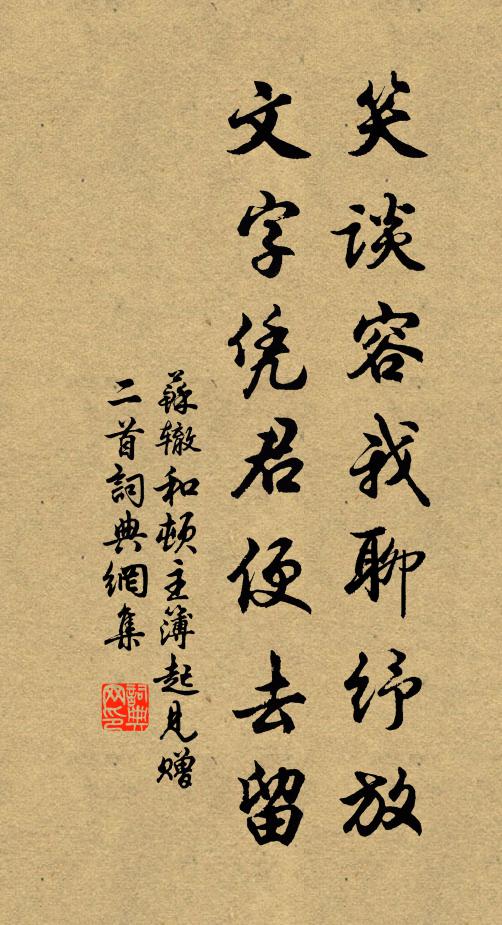 笑谈容我聊纾放
文字凭君便去留
蘇辙和顿主簿起见赠
二首詞典網集
詞典网印